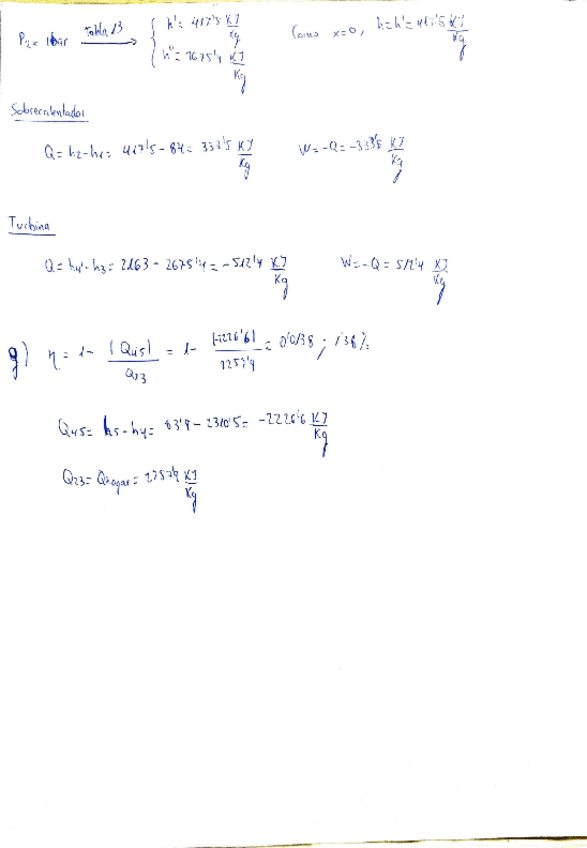 P₂ = 1 bar Tabla 13 → { h' = 417'5 KJ/Kg
h'' = 2675'4 KJ/Kg
Como x=0, h=h'= 417'5 KJ/Kg
Sobrecalentador
Q = h₂-h₁ = 417'5 - 84 = 333'5 KJ/Kg W = -Q = -333'5 KJ/Kg
Turbina
Q = h₄' - h₃ = 2163 - 2675'4 = -512'4 KJ/Kg W = -Q = 512'4 KJ/Kg
g) η = 1 - |Q₄₅| / Q₂₃ = 1 - |-2226'6| / 2257'9 = 0'0138 ; 1'38%
Q₄₅ = h₅ - h₄ = 83'9 - 2310'5 = -2226'6 KJ/Kg
Q₂₃ = Qhogar = 2257'9 KJ/Kg